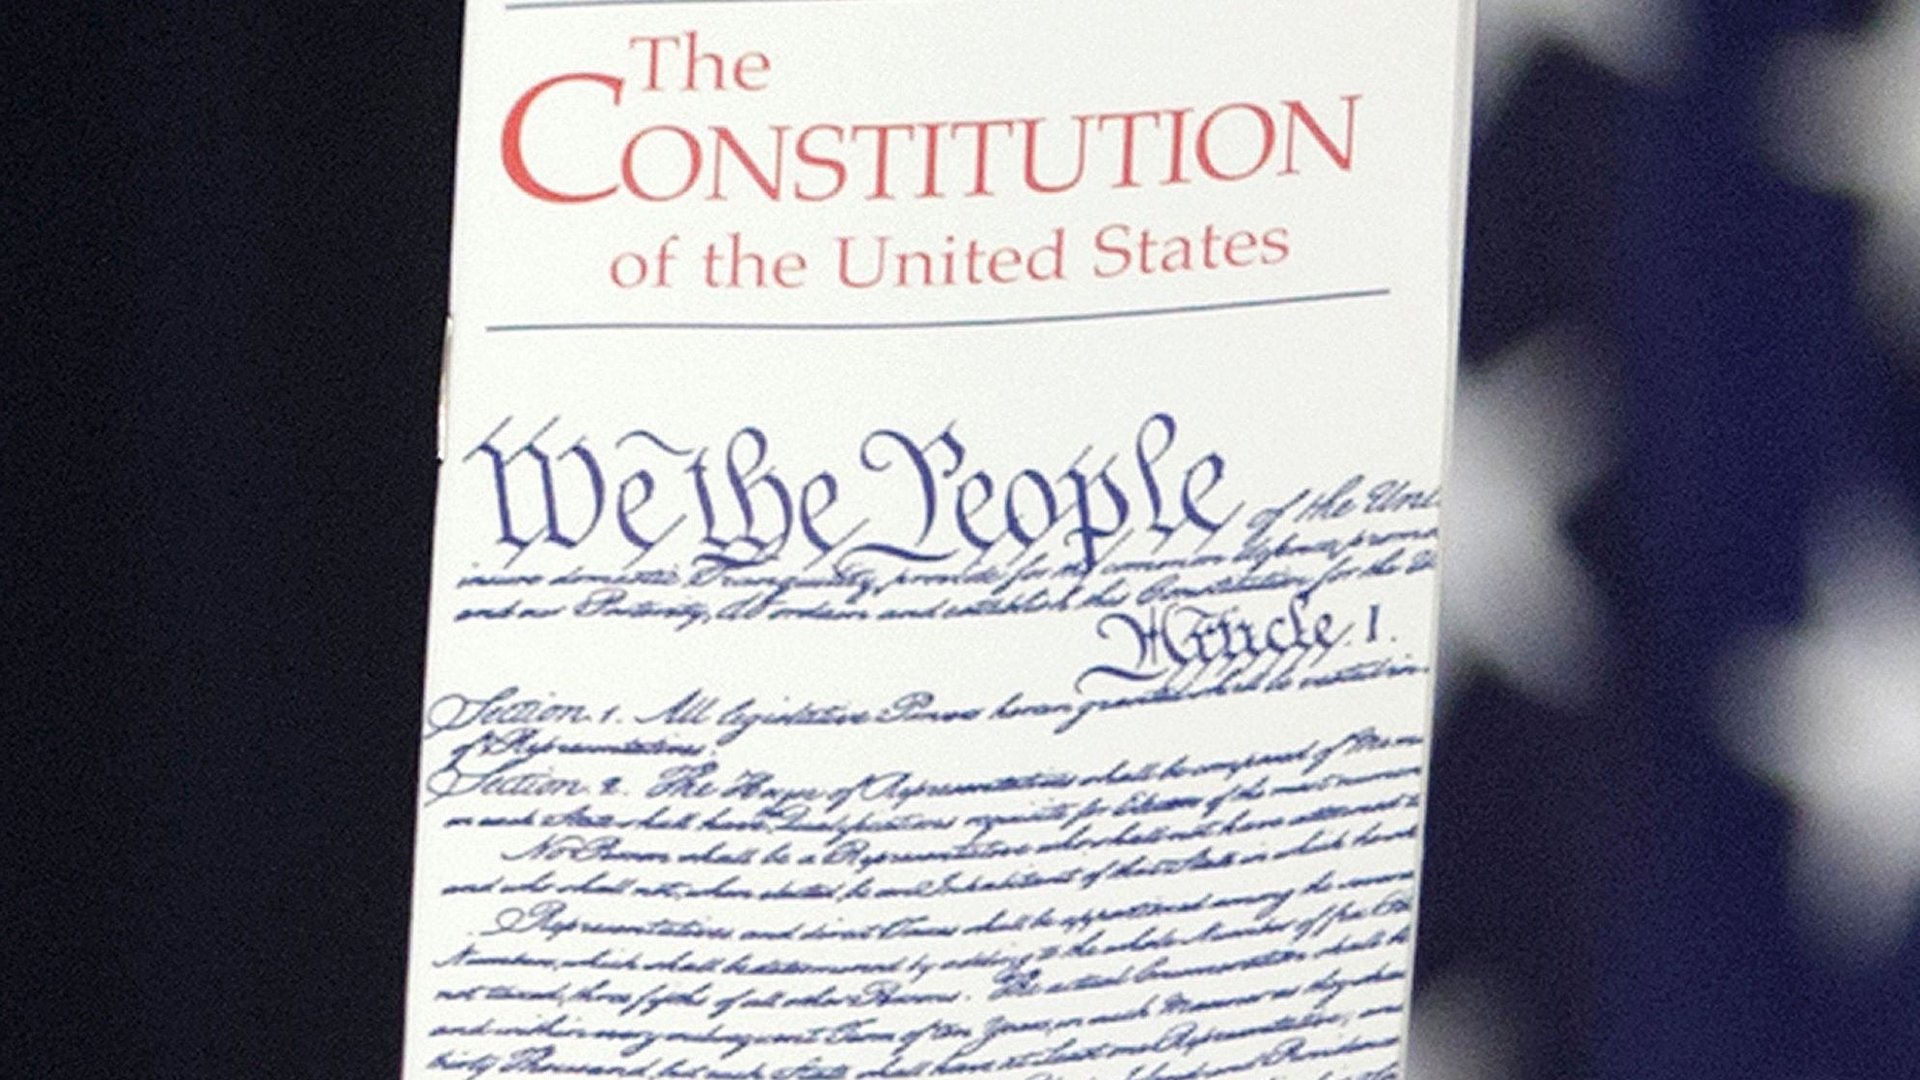 The
CONSTITUTION
of the United States
We the People of the Uni
insure domestic Tranquility, provide for the common defence, promo
and our Posterity, do ordain and establish this Constitution for the U
Article. I.
Section. 1. All legislative Powers herein granted shall be vested in
of Representatives.
Section. 2. The House of Representatives shall be composed of Mem
in each State shall have the Qualifications requisite for Electors of the most numero
No Person shall be a Representative who shall not have attained to
and who shall not, when elected, be an Inhabitant of that State in which he
Representatives and direct Taxes shall be apportioned among the several
Numbers, which shall be determined by adding to the whole Number of free
not taxed, three fifths of all other Persons. The actual Enumeration shall be
and within every subsequent Term of ten Years, in such Manner as they shall
thirty Thousand, but each State shall have at Least one Representative; and